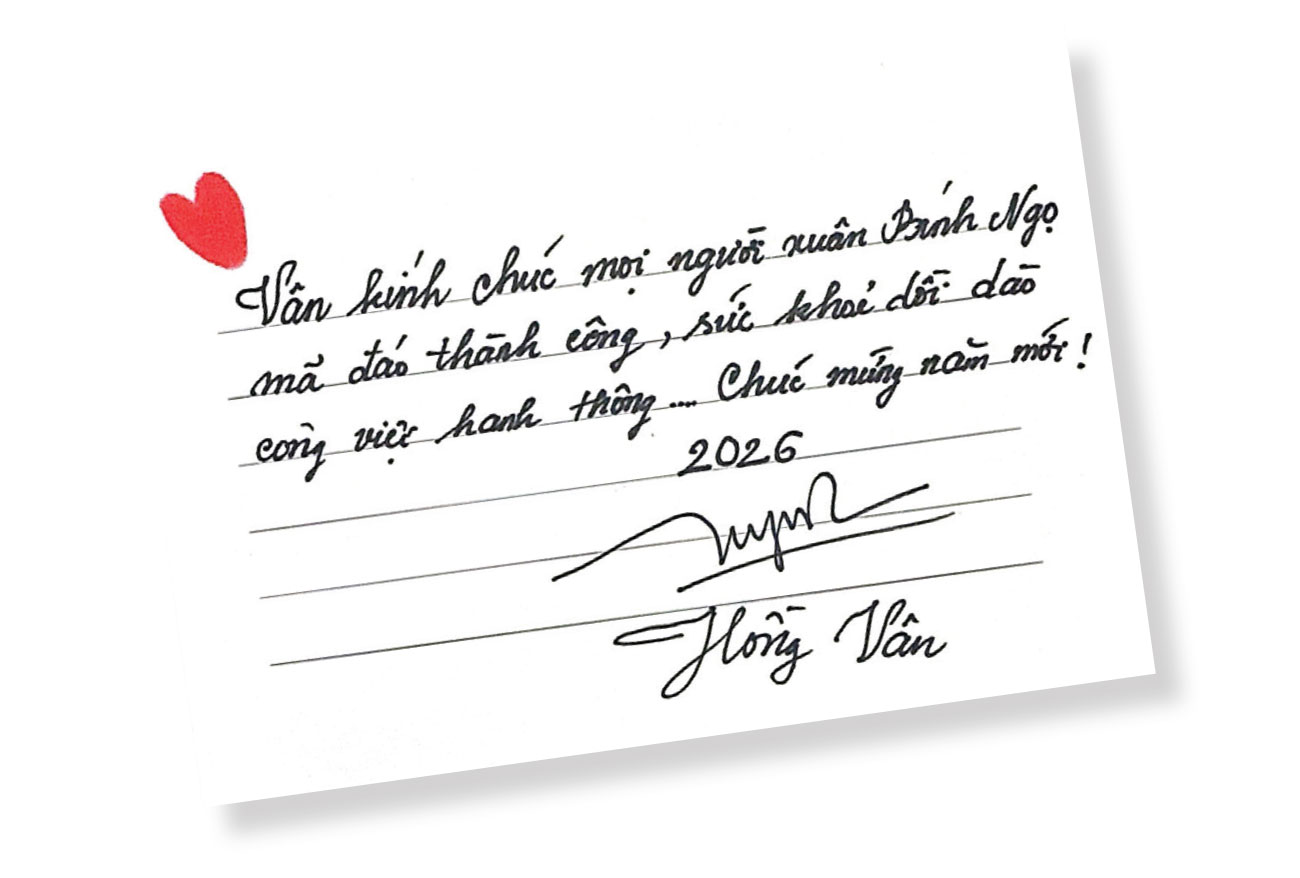 Vân kính chúc mọi người xuân Bính Ngọ
mã đáo thành công, sức khoẻ dồi dào
công việc hanh thông.... Chúc mừng năm mới!
2026
Hồng Vân